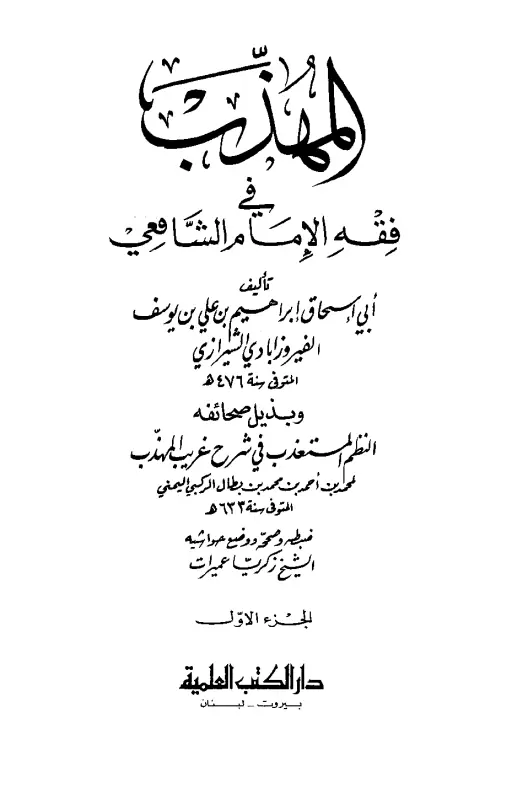 المهذّب
في
فِقْهِ الإِمَامِ الشَّافِعِي
تأليف
أبي إسحاق إبراهيم بن علي بن يوسف
الفيروزابادي الشيرازي
المتوفى سنة ٤٧٦ هـ
وبذيل صحائفه
النظم المستعذب في شرح غريب المهذّب
لمحمد بن أحمد بن محمد بن بطال الركبي اليمني
المتوفى سنة ٦٣٣ هـ
ضبطه وصححه ووضع حواشيه
الشيخ زكريا عميرات
الجزء الأوّل
دار الكتب العلمية
بيروت - لبنان